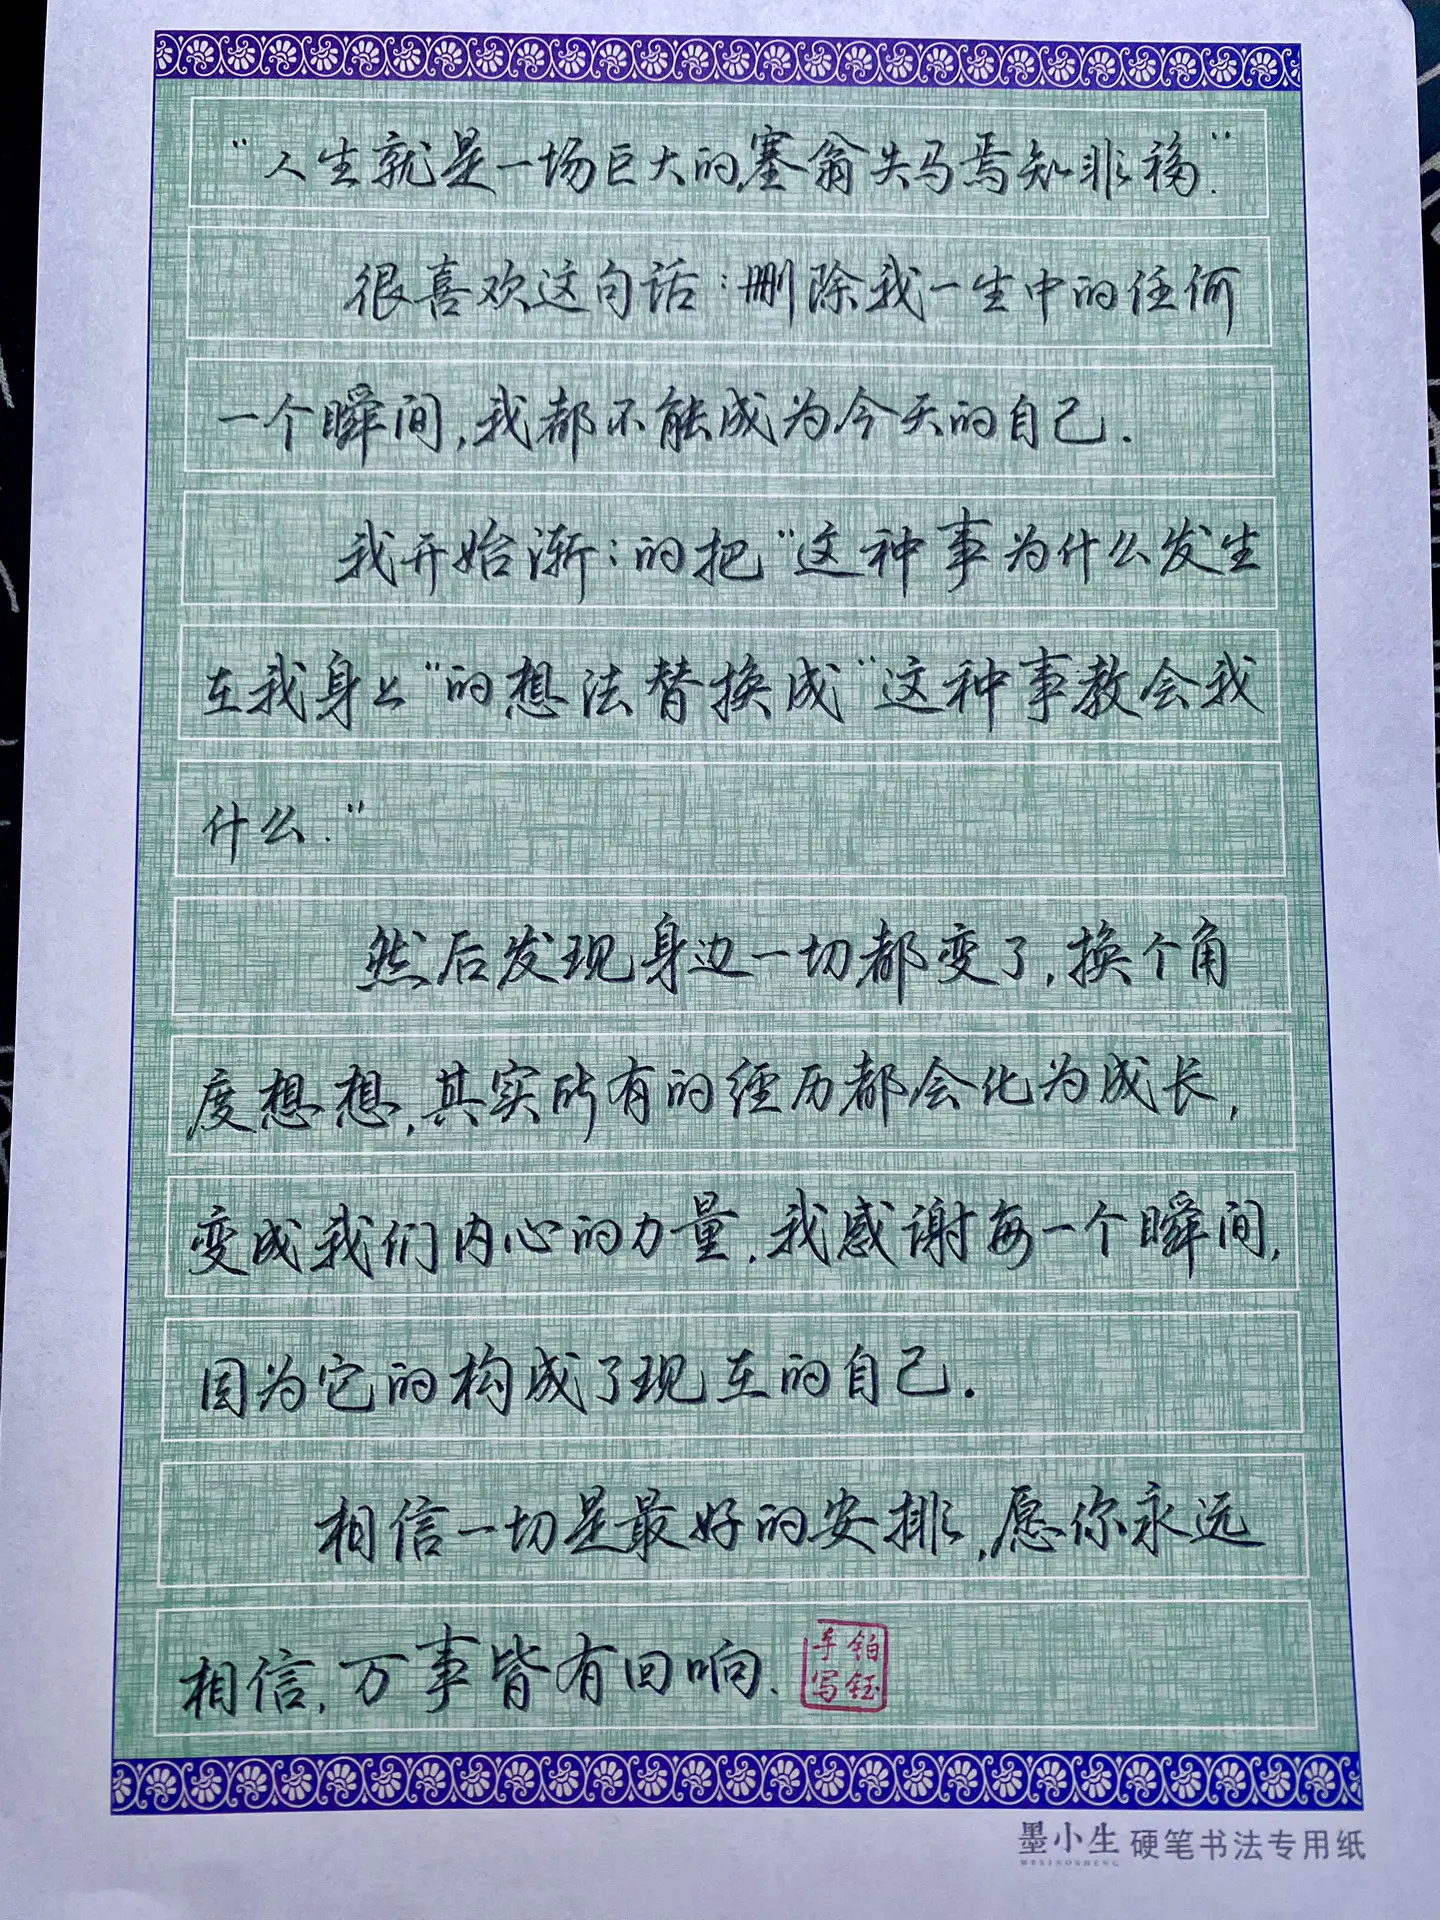 “人生就是一场巨大的塞翁失马焉知非福.”
很喜欢这句话:删除我一生中的任何
一个瞬间,我都不能成为今天的自己.
我开始渐:的把“这种事为什么发生
在我身上”的想法替换成“这种事教会我
什么.”
然后发现身边一切都变了,换个角
度想想,其实所有的经历都会化为成长,
变成我们内心的力量.我感谢每一个瞬间,
因为它的构成了现在的自己.
相信一切是最好的安排,愿你永远
相信,万事皆有回响.
铂钰手写
墨小生 硬笔书法专用纸
MOXIAOSHENG